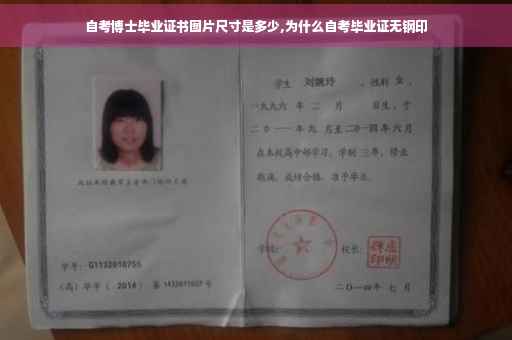 自考博士毕业证书图片尺寸是多少,为什么自考毕业证无钢印
学生 刘婉玲 ，性别 女 ，
一九九六 年 二 月 日生，于
二0一一 年 九 月至 二0一四 年 六 月
在本校高中部学习，学制 三 年，修业
期满，成绩合格，准予毕业。
学号： G1132010755
（高）毕字（ 2014 ）第 1432011007 号
学校：
校长：
二〇一四年 七 月